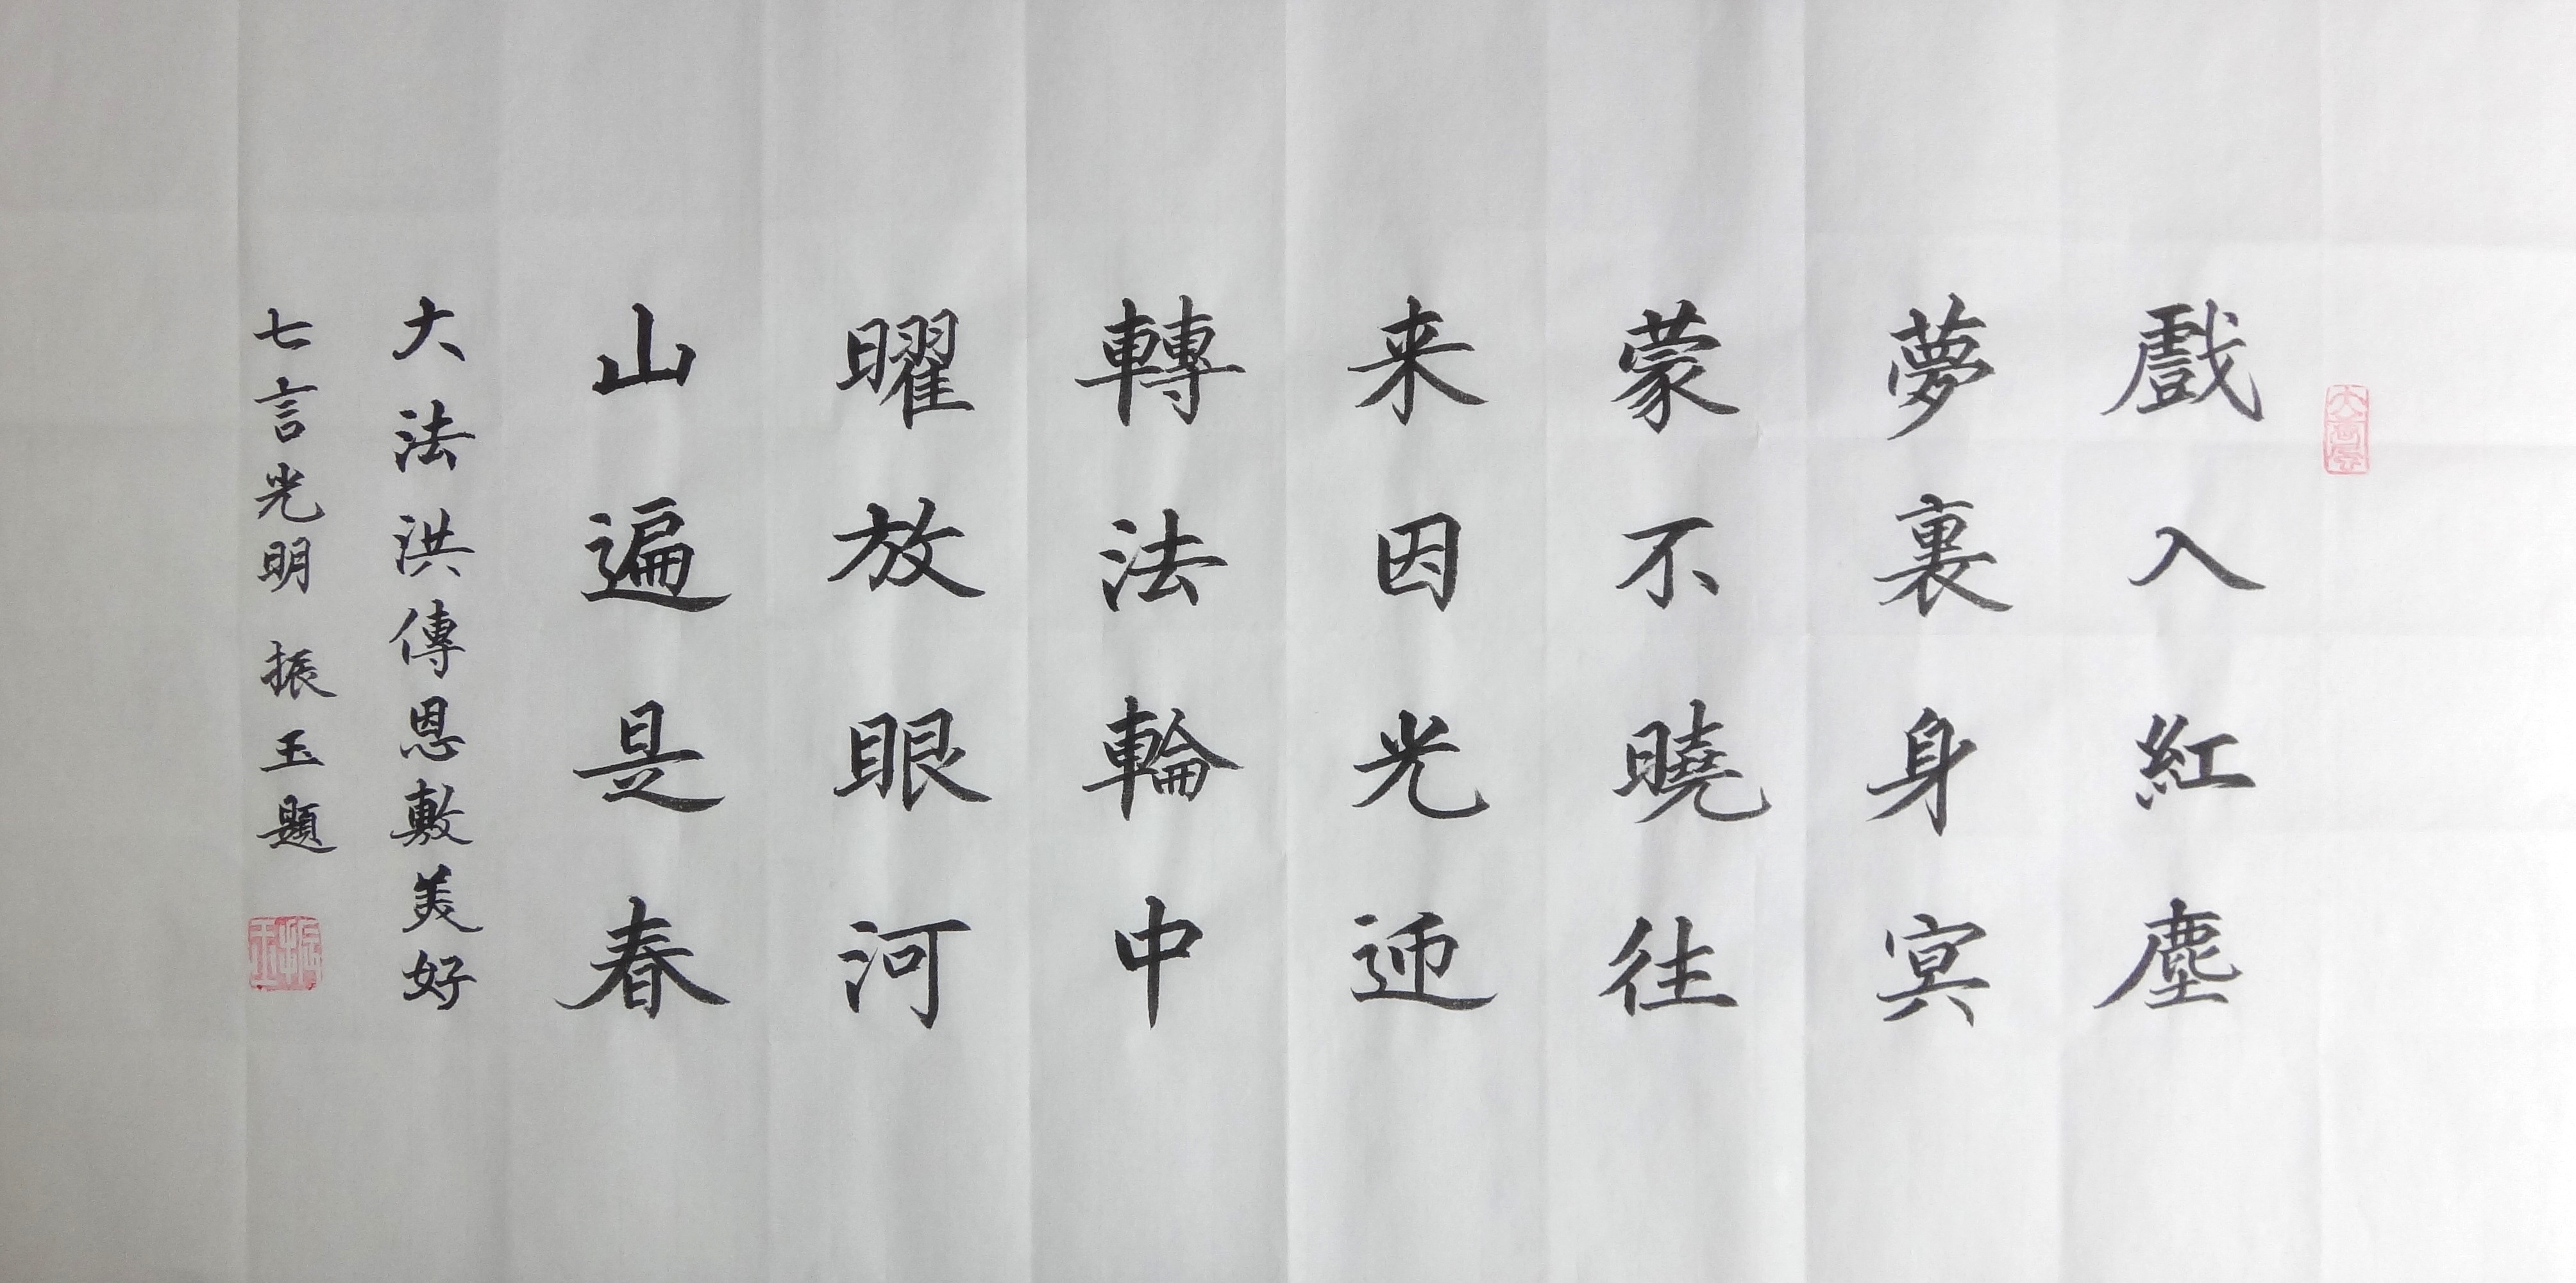 戲入紅塵
夢裏身冥
蒙不曉往
来因光迊
轉法輪中
曜放眼河
山遍是春
大法洪傳恩敷美好
七言光明 振玉題
振玉